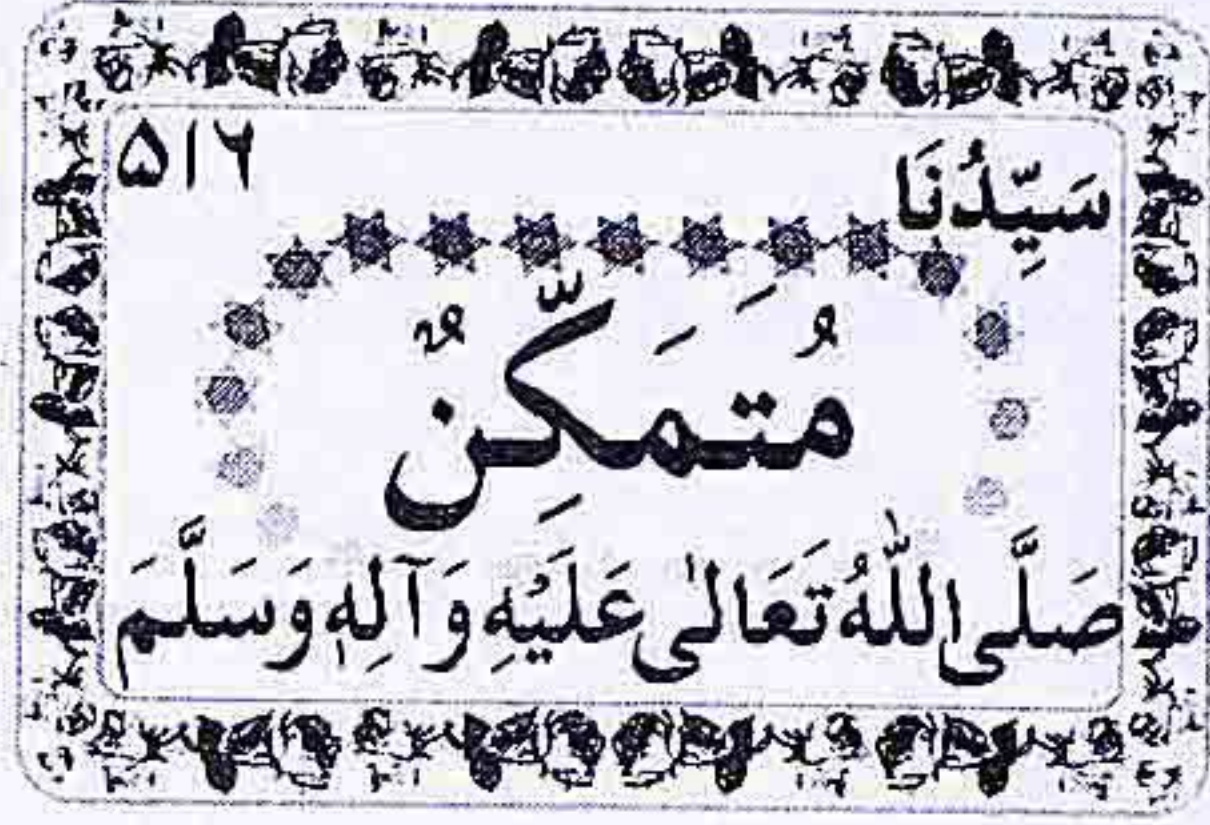 سَيِّدُنَا
۵۱۲
مُتَمَكِّنٌ
صَلَّى اللّٰهُ تَعَالٰى عَلَيْهِ وَآلِهٖ وَسَلَّمَ